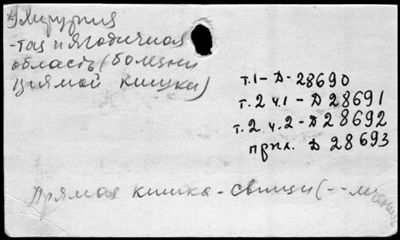 Хирургия
-таз и ягодичная
область (болезни
прямой кишки)
т.1-Д-28690
т.2 ч.1-Д 28691
т.2 ч.2-Д 28692
прил. Д 28693
Прямая кишка-свищи (--лечение